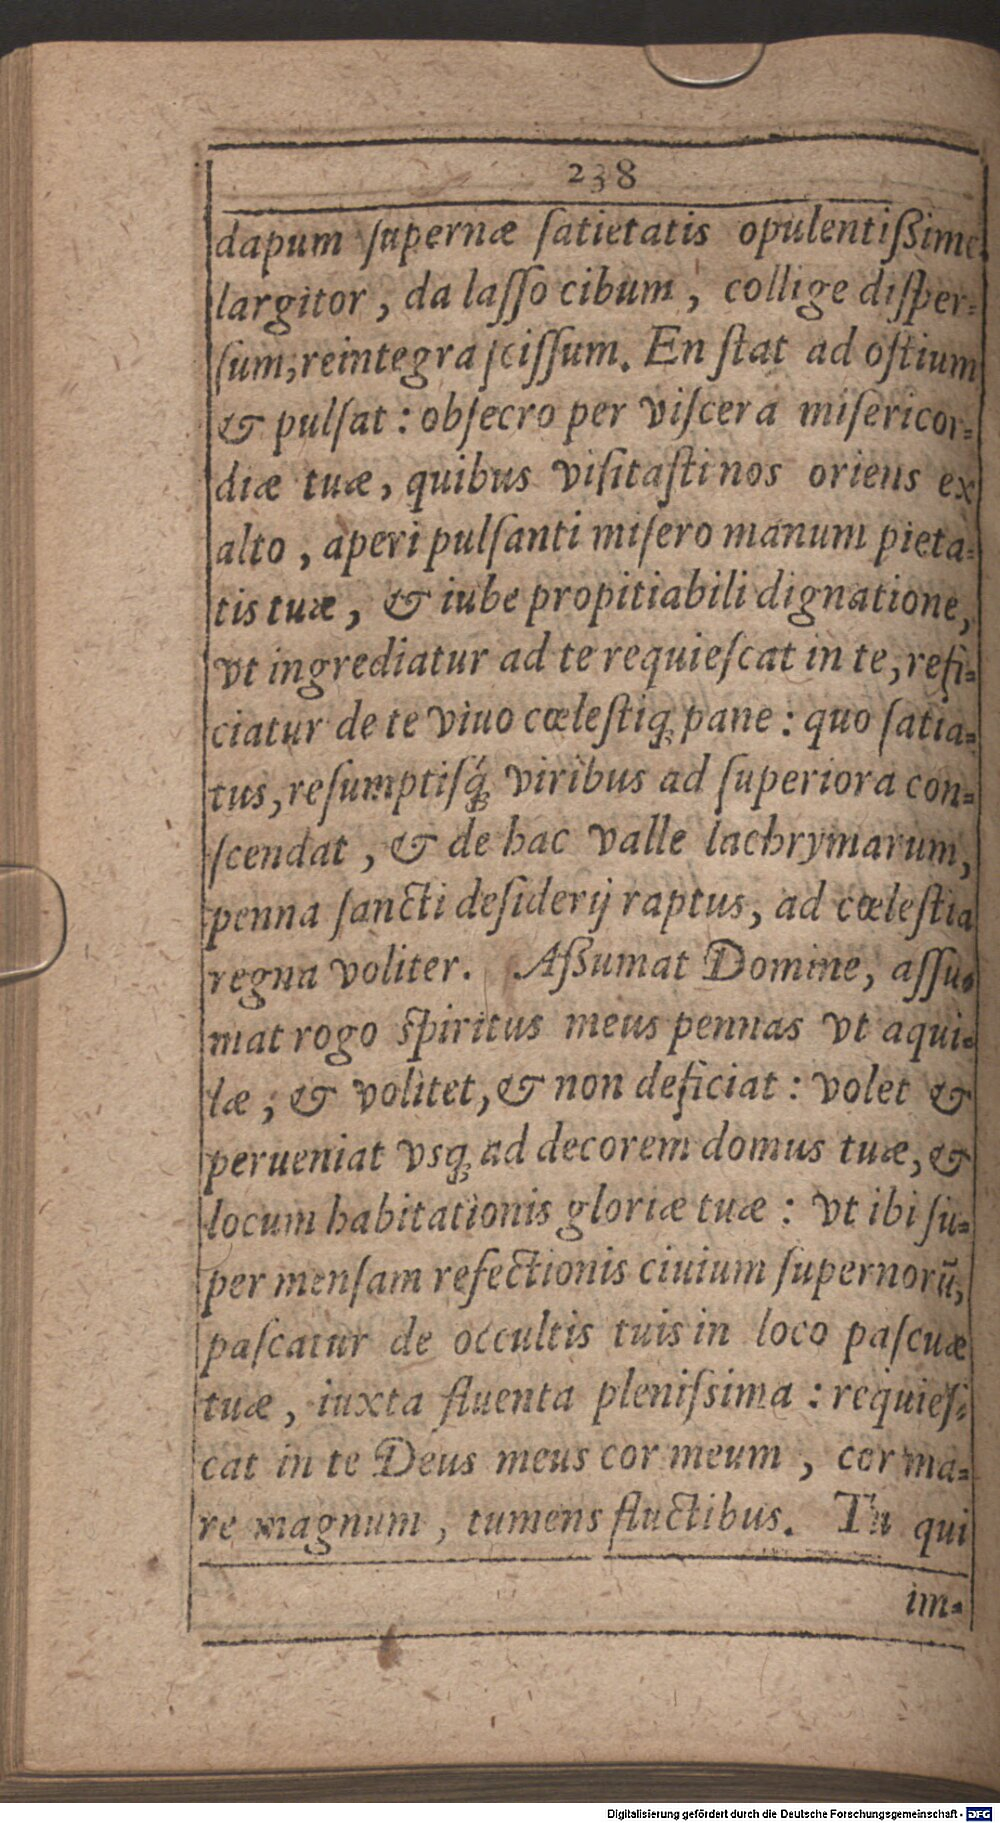 238
dapum ſupernæ ſatietatis opulentiſsime
largitor, da laſſo cibum, collige diſper-
ſum, reintegra ſciſſum. En ſtat ad oſtium
& pulſat: obſecro per viſcera miſericor-
diæ tuæ, quibus viſitaſti nos oriens ex
alto, aperi pulſanti miſero manum pieta-
tis tuæ, & iube propitiabili dignatione,
vt ingrediatur ad te requieſcat in te, refi-
ciatur de te viuo cœleſtiq; pane: quo ſatia-
tus, reſumptiſq́; viribus ad ſuperiora con-
ſcendat, & de hac valle lachrymarum,
penna ſancti deſiderij raptus, ad cœleſtia
regna voliter. Aſsumat Domine, aſſu-
mat rogo ſpiritus meus pennas vt aqui-
læ; & volitet, & non deficiat: volet &
perueniat vsq; ad decorem domus tuæ, &
locum habitationis gloriæ tuæ: vt ibi ſu-
per menſam refectionis ciuium ſupernorũ,
paſcatur de occultis tuis in loco paſcuæ
tuæ, iuxta fluenta pleniſsima: requieſ-
cat in te Deus meus cor meum, cor ma-
re magnum, tumens fluctibus. Tu qui
im-
Digitalisierung gefördert durch die Deutsche Forschungsgemeinschaft - DFG